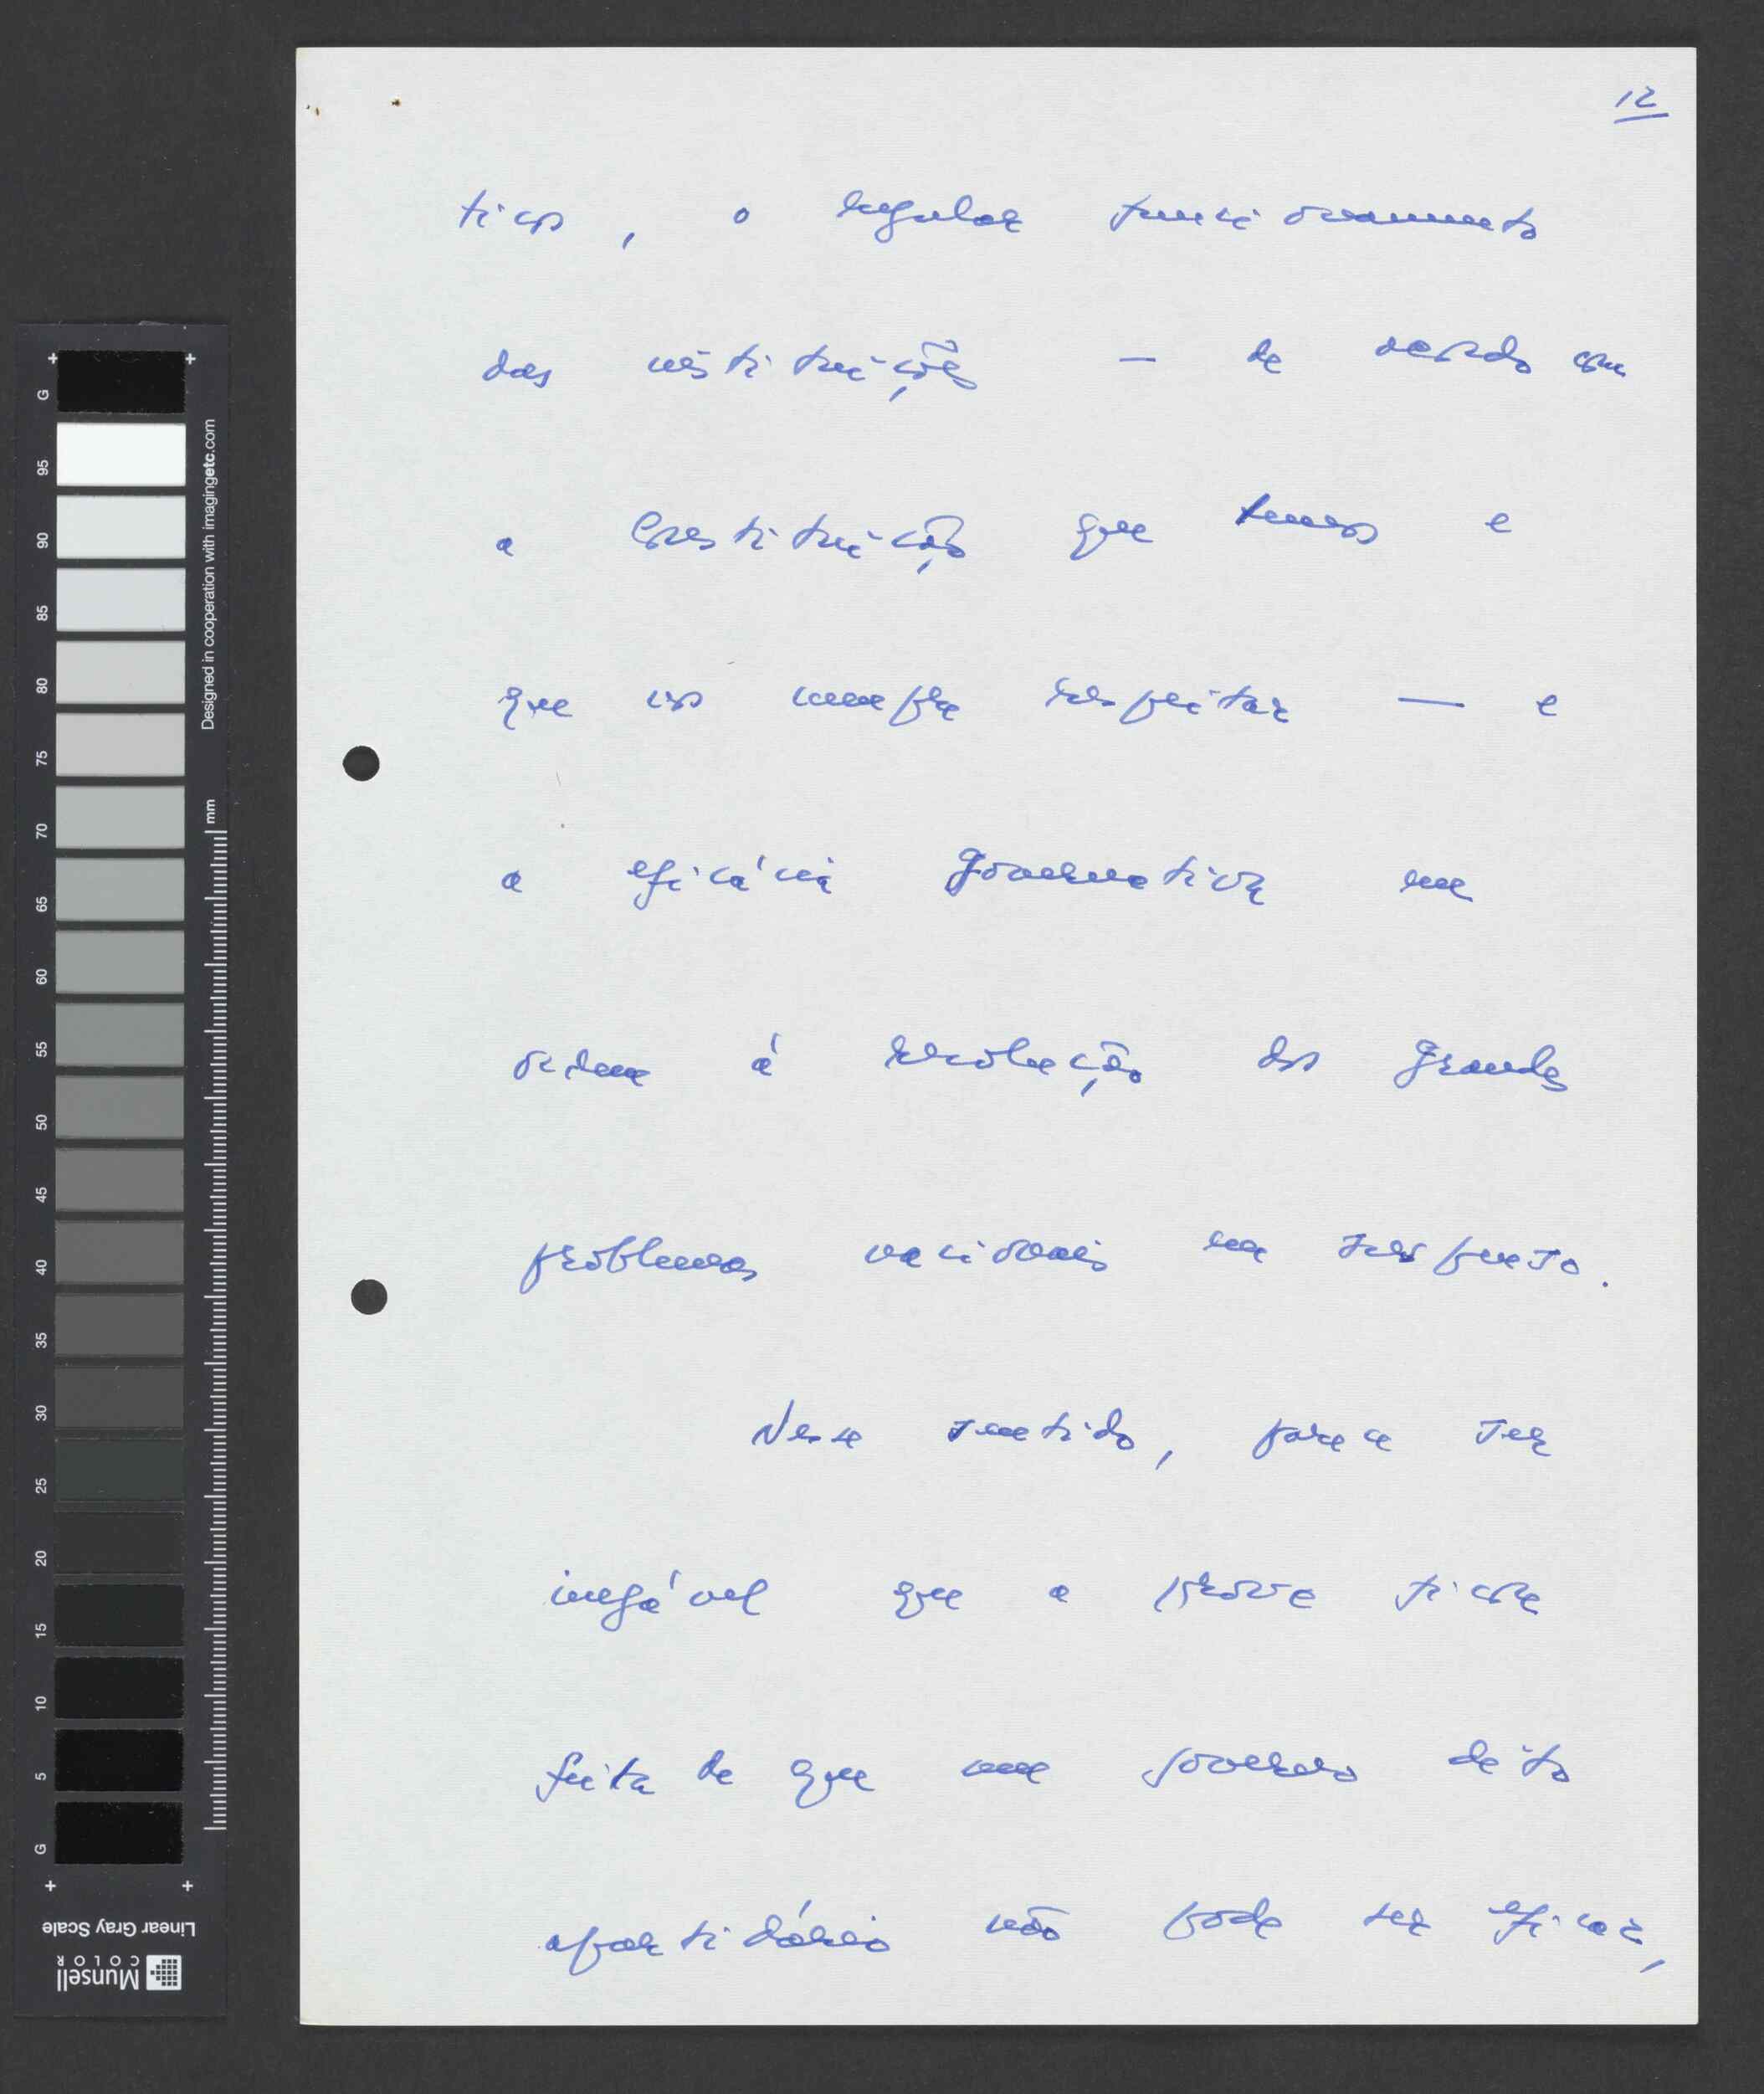 12
ticos, o regular funcionamento
das instituições — de acordo com
a Constituição que temos e
que nos cumpre respeitar — e
a eficácia governativa em
ordem à resolução dos grandes
problemas nacionais em suspenso.
Nesse sentido, parece ser
inegável que a prova ficou
feita de que um governo dito
apartidário não pode ser eficaz,
G
95
90
85
80
75
70
65
60
55
50
45
40
35
30
25
20
15
10
5
G
Designed in cooperation with imagingetc.com
mm
Linear Gray Scale
Munsell
COLOR